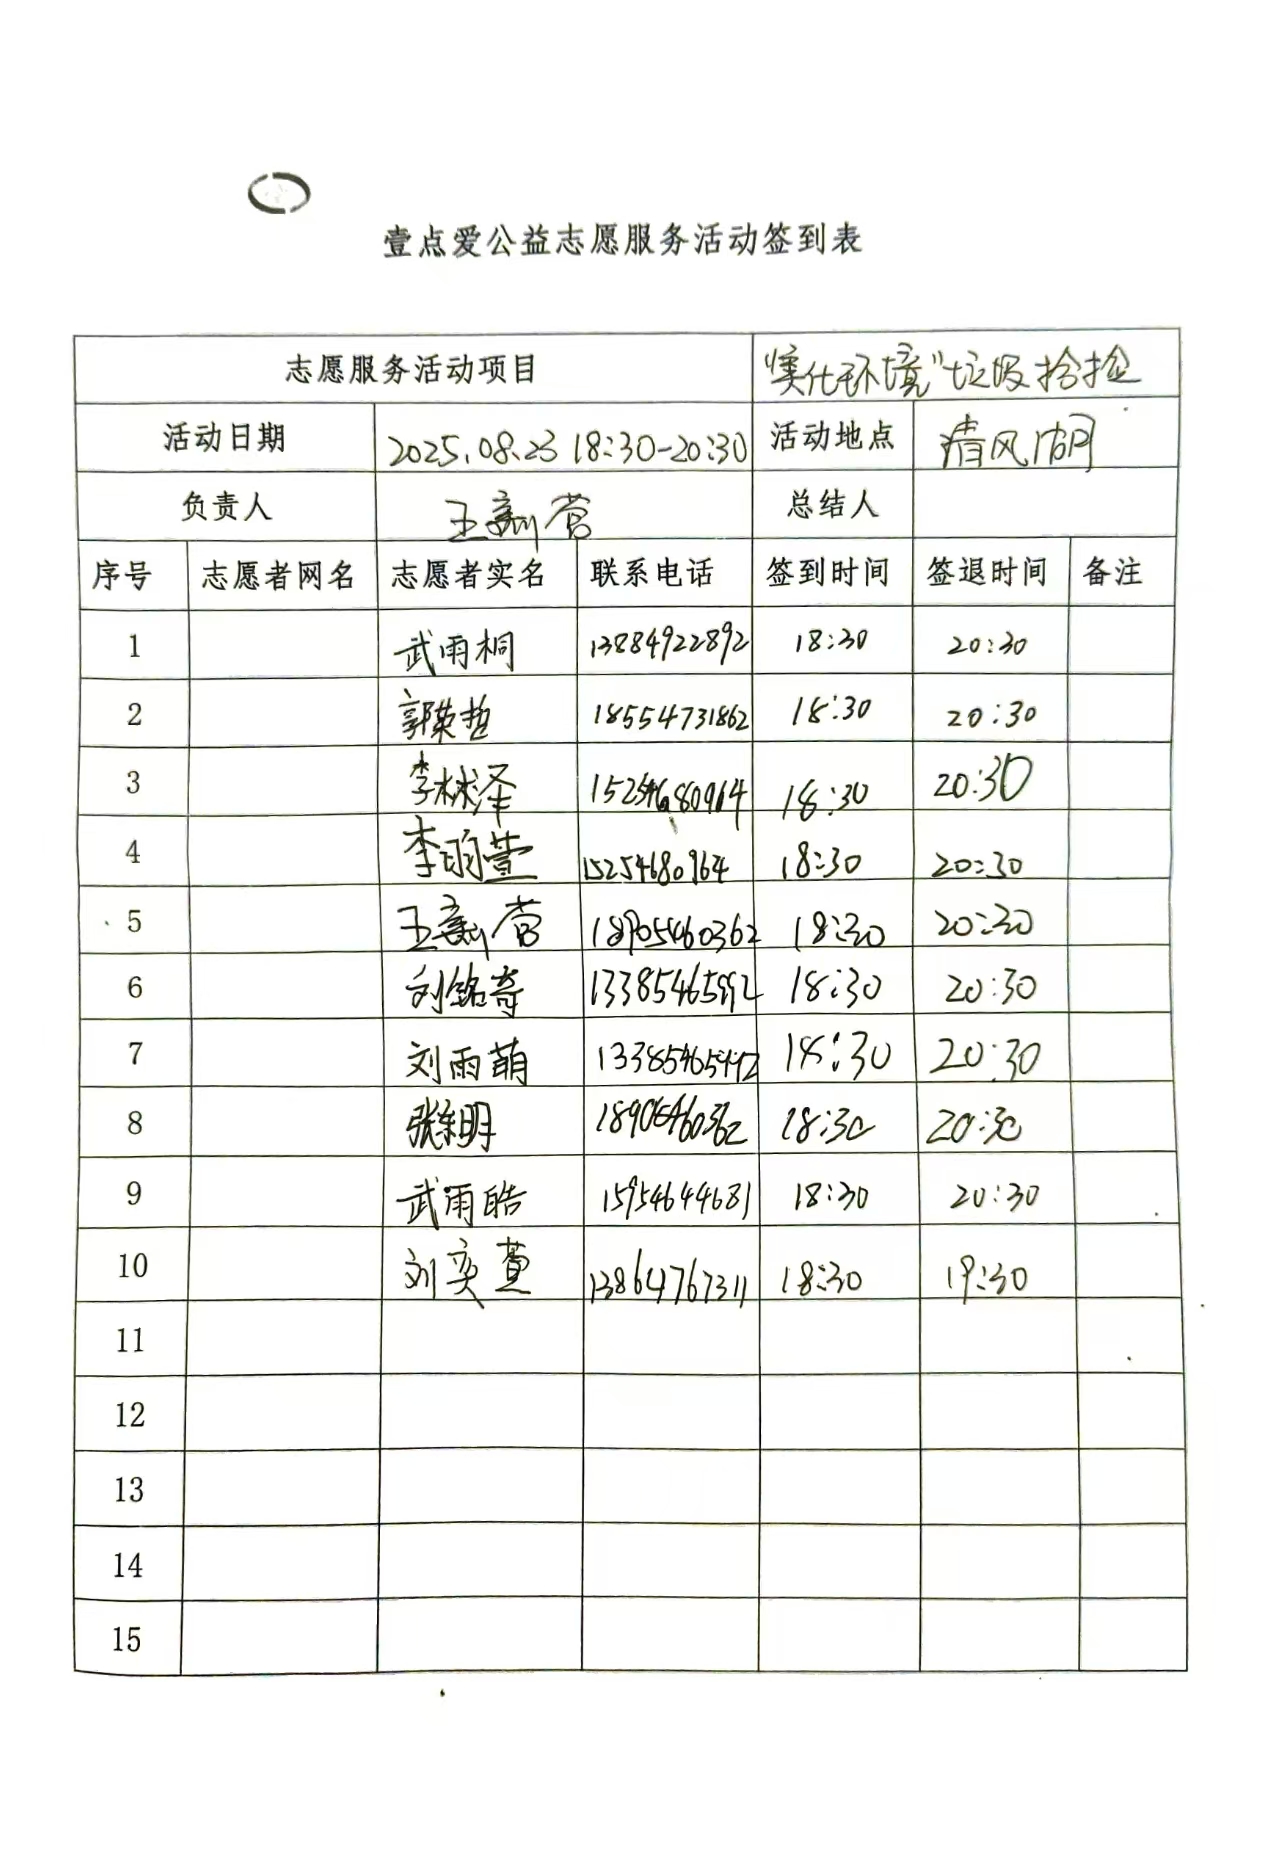 壹点爱公益志愿服务活动签到表
志愿服务活动项目 "美化环境"垃圾捡捡
活动日期 2025.08.23 18:30-20:30 活动地点 清风湖
负责人 王新营 总结人
序号 志愿者网名 志愿者实名 联系电话 签到时间 签退时间 备注
1 武雨桐 13884922892 18:30 20:30
2 郭荣哲 18554731862 18:30 20:30
3 李林泽 15254680964 18:30 20:30
4 李雨萱 15254680964 18:30 20:30
5 王新营 18905460362 18:30 20:30
6 刘铭奇 13385465992 18:30 20:30
7 刘雨萌 13385465992 18:30 20:30
8 18905460362 18:30 20:30
9 武雨皓 15954644681 18:30 20:30
10 刘奕萱 13864767311 18:30 19:30
11
12
13
14
15